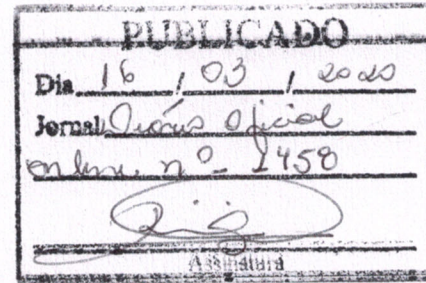 PUBLICADO
Dia 16 / 03 / 2020
Jornal Diário Oficial
online nº 1458
Assinatura